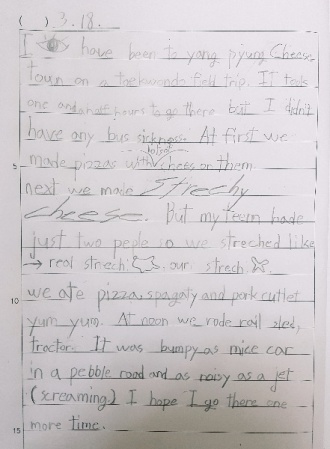 ( ) 3.18.
I have been to yang pyung Cheese
toun on a taekwondo field trip. IT took
one and a half hours to go there but I didn't
have any bus sickness. At first we
made pizzas with chees on them.
5
next we made Strechy
cheese. But my team hade
just two peple so we streched like
→ real strech: our strech.
10
we ate pizza, spagaty and pork cutlet
yum yum. At noon we rode rail sled,
tractor. It was bumpy as mice car
in a pebble road and as noisy as a jet
(screaming) I hope I go there one
15
more time.